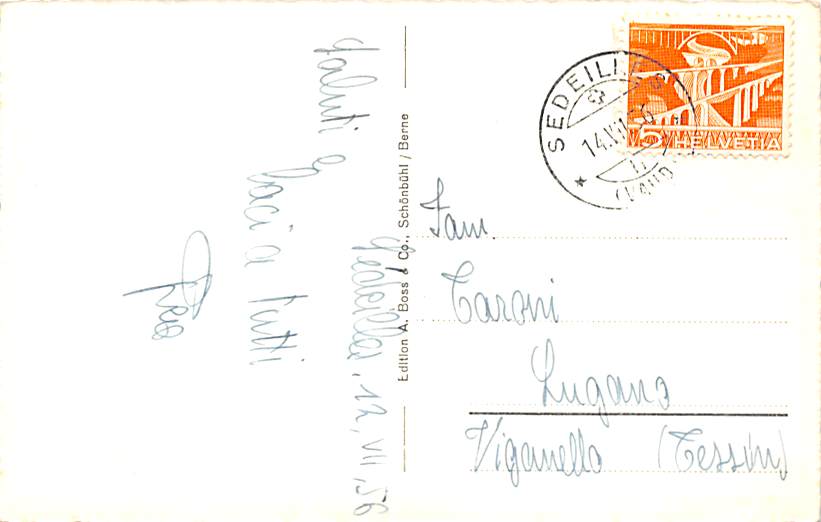 Sedeilles, 12, VII, 56
Saluti e
baci a tutti
Edition A. Boss & Co., Schönbühl / Berne
SEDEILLES
14.VII.56
(VAUD)
5 HELVETIA
Fam.
Caroni
Lugano
Viganello (Tessin)